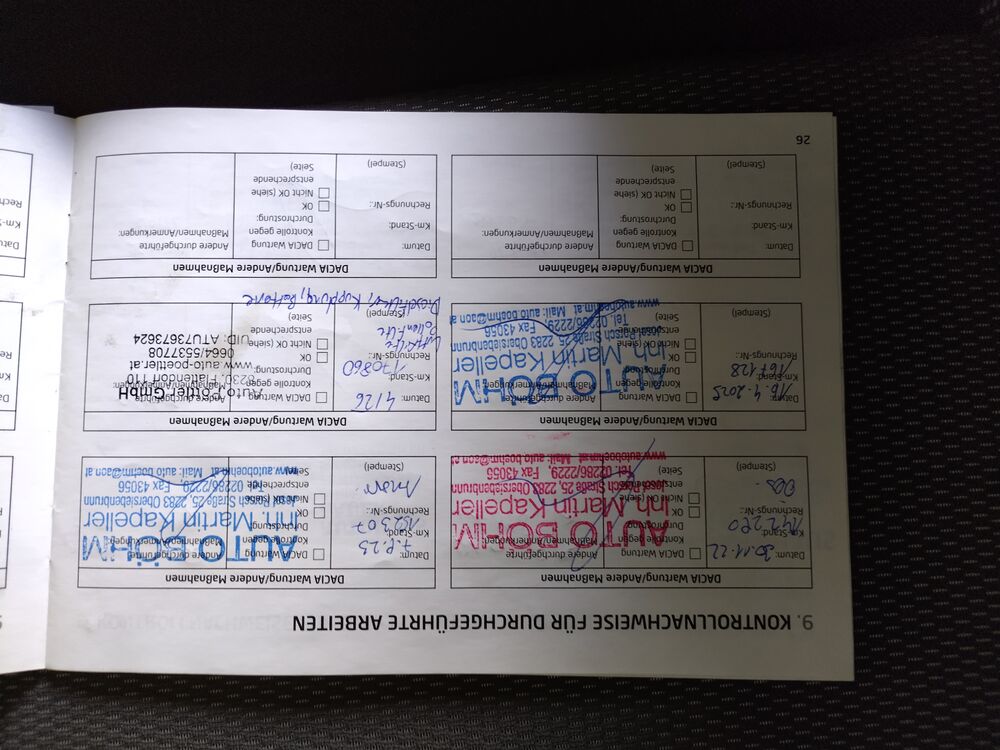 9. KONTROLLNACHWEISE FÜR DURCHGEFÜHRTE ARBEITEN
DACIA Wartung/Andere Maßnahmen
Datum: 30.11.22
Km-Stand:
Rechnungs-Nr.:
DACIA Wartung
Kontrolle gegen
Durchrostung:
OK
Nicht OK (siehe
entsprechende
Seite)
Andere durchgeführte
AUTO BÖHM
Inh. Martin Kapeller
Josef Porsch Straße 25, 2283 Obersiebenbrunn
Tel. 02286/2229, Fax 43056
www.autoboehm.at Mail: auto.boehm@aon.at
DACIA Wartung/Andere Maßnahmen
Datum:
Km-Stand:
Rechnungs-Nr.:
(Stempel)
DACIA Wartung
Kontrolle gegen
Durchrostung:
OK
Nicht OK (siehe
entsprechende
Seite)
Andere durchgeführte
AUTO BÖHM
Inh. Martin Kapeller
Straße 25, 2283 Obersiebenbrunn
Tel. 02286/2229, Fax 43056
www.autoboehm.at Mail: auto.boehm@aon.at
DACIA Wartung/Andere Maßnahmen
Datum: 16.4.2025
Km-Stand: 167128
Rechnungs-Nr.:
(Stempel)
DACIA Wartung
Kontrolle gegen
Durchrostung:
OK
Nicht OK (siehe
entsprechende
Seite)
Andere durchgeführte
Maßnahmen/Anmerkungen:
AUTO BÖHM
Inh. Martin Kapeller
Josef Porsch Straße 25, 2283 Obersiebenbrunn
Tel. 02286/2229, Fax 43056
www.autoboehm.at Mail: auto.boehm@aon.at
DACIA Wartung/Andere Maßnahmen
Datum: 4/26
Km-Stand: 170860
Rechnungs-Nr.:
(Stempel)
Luftfilter
Pollenfilter
Dieselfilter, Kupplung, Batterie
DACIA Wartung
Kontrolle gegen
Durchrostung:
OK
Nicht OK (siehe
entsprechende
Seite)
Andere durchgeführte
Maßnahmen/Anmerkungen:
Auto Pöttler GmbH
www.auto-poettler.at
0664/5537708
UID: ATU73673624
DACIA Wartung/Andere Maßnahmen
Datum:
Km-Stand:
Rechnungs-Nr.:
(Stempel)
DACIA Wartung
Kontrolle gegen
Durchrostung:
OK
Nicht OK (siehe
entsprechende
Seite)
Andere durchgeführte
Maßnahmen/Anmerkungen:
DACIA Wartung/Andere Maßnahmen
Datum:
Km-Stand:
Rechnungs-Nr.:
(Stempel)
DACIA Wartung
Kontrolle gegen
Durchrostung:
OK
Nicht OK (siehe
entsprechende
Seite)
Andere durchgeführte
Maßnahmen/Anmerkungen:
26